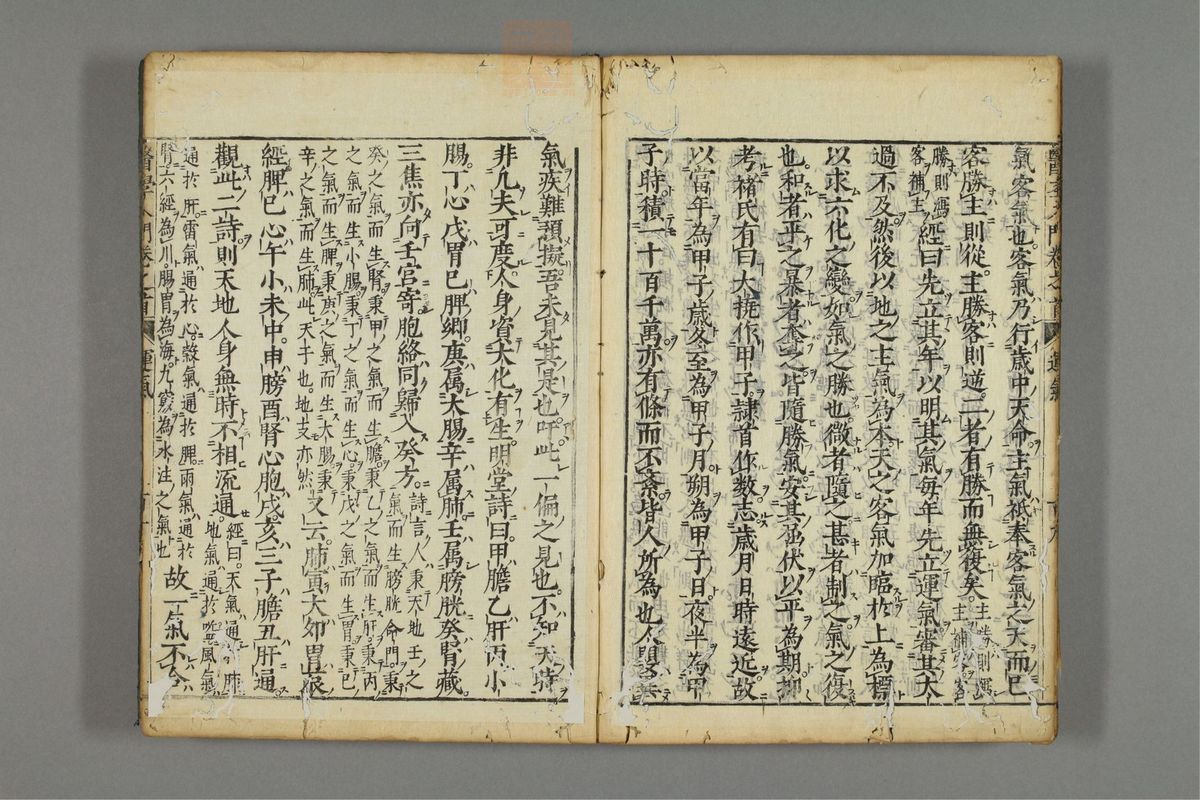 氣客氣也客氣乃行歲中天命主氣祇奉客氣之天而已
客勝主則從主勝客則逆二者有勝而無復矣主勝則瀉
主補客
勝則瀉
客補主經曰先立其年以明其氣每年先立運氣審其太
過不及然後以地之主氣為本天之客氣加臨於上為標
以求六化之變如氣之勝也微者隨之甚者制之氣之復
也和者平之暴者奪之皆隨勝氣安其屈伏以平為期抑
考褚氏有曰大撓作甲子隷首作数志歲月日時遠近故
以當年為甲子歲冬至為甲子月朔為甲子日夜半為甲
子時積一十百千萬亦有條而不紊皆人所為也人
氣疾難預擬吾未見其是也吁此一偏之見也不知天時
非凡夫可度人身資大化有生明堂詩曰甲膽乙肝丙小
腸丁心戊胃己脾鄉庚属大腸辛属肺壬属膀胱癸腎藏
三焦亦向壬宮寄胞絡同歸入癸方詩言人秉天地壬之
氣而生膀胱命門秉
癸之氣而生腎秉甲之氣而生膽秉乙之氣而生肝秉丙
之氣而生小腸秉丁之氣而生心秉戊之氣而生胃秉己
之氣而生脾秉庚之氣而生大腸秉
辛之氣而生肺此天干也地支亦然又云肺寅大卯胃辰
經脾巳心午小未中申膀酉腎心胞戌亥三子膽丑肝通
觀此二詩則天地人身無時不相流通經曰天氣通於肺
地氣通於嗌風氣
通於肝雷氣通於心穀氣通於脾雨氣通於
腎六經為川腸胃為海九竅為水注之氣也故一氣不合
醫學入門卷之首 運氣